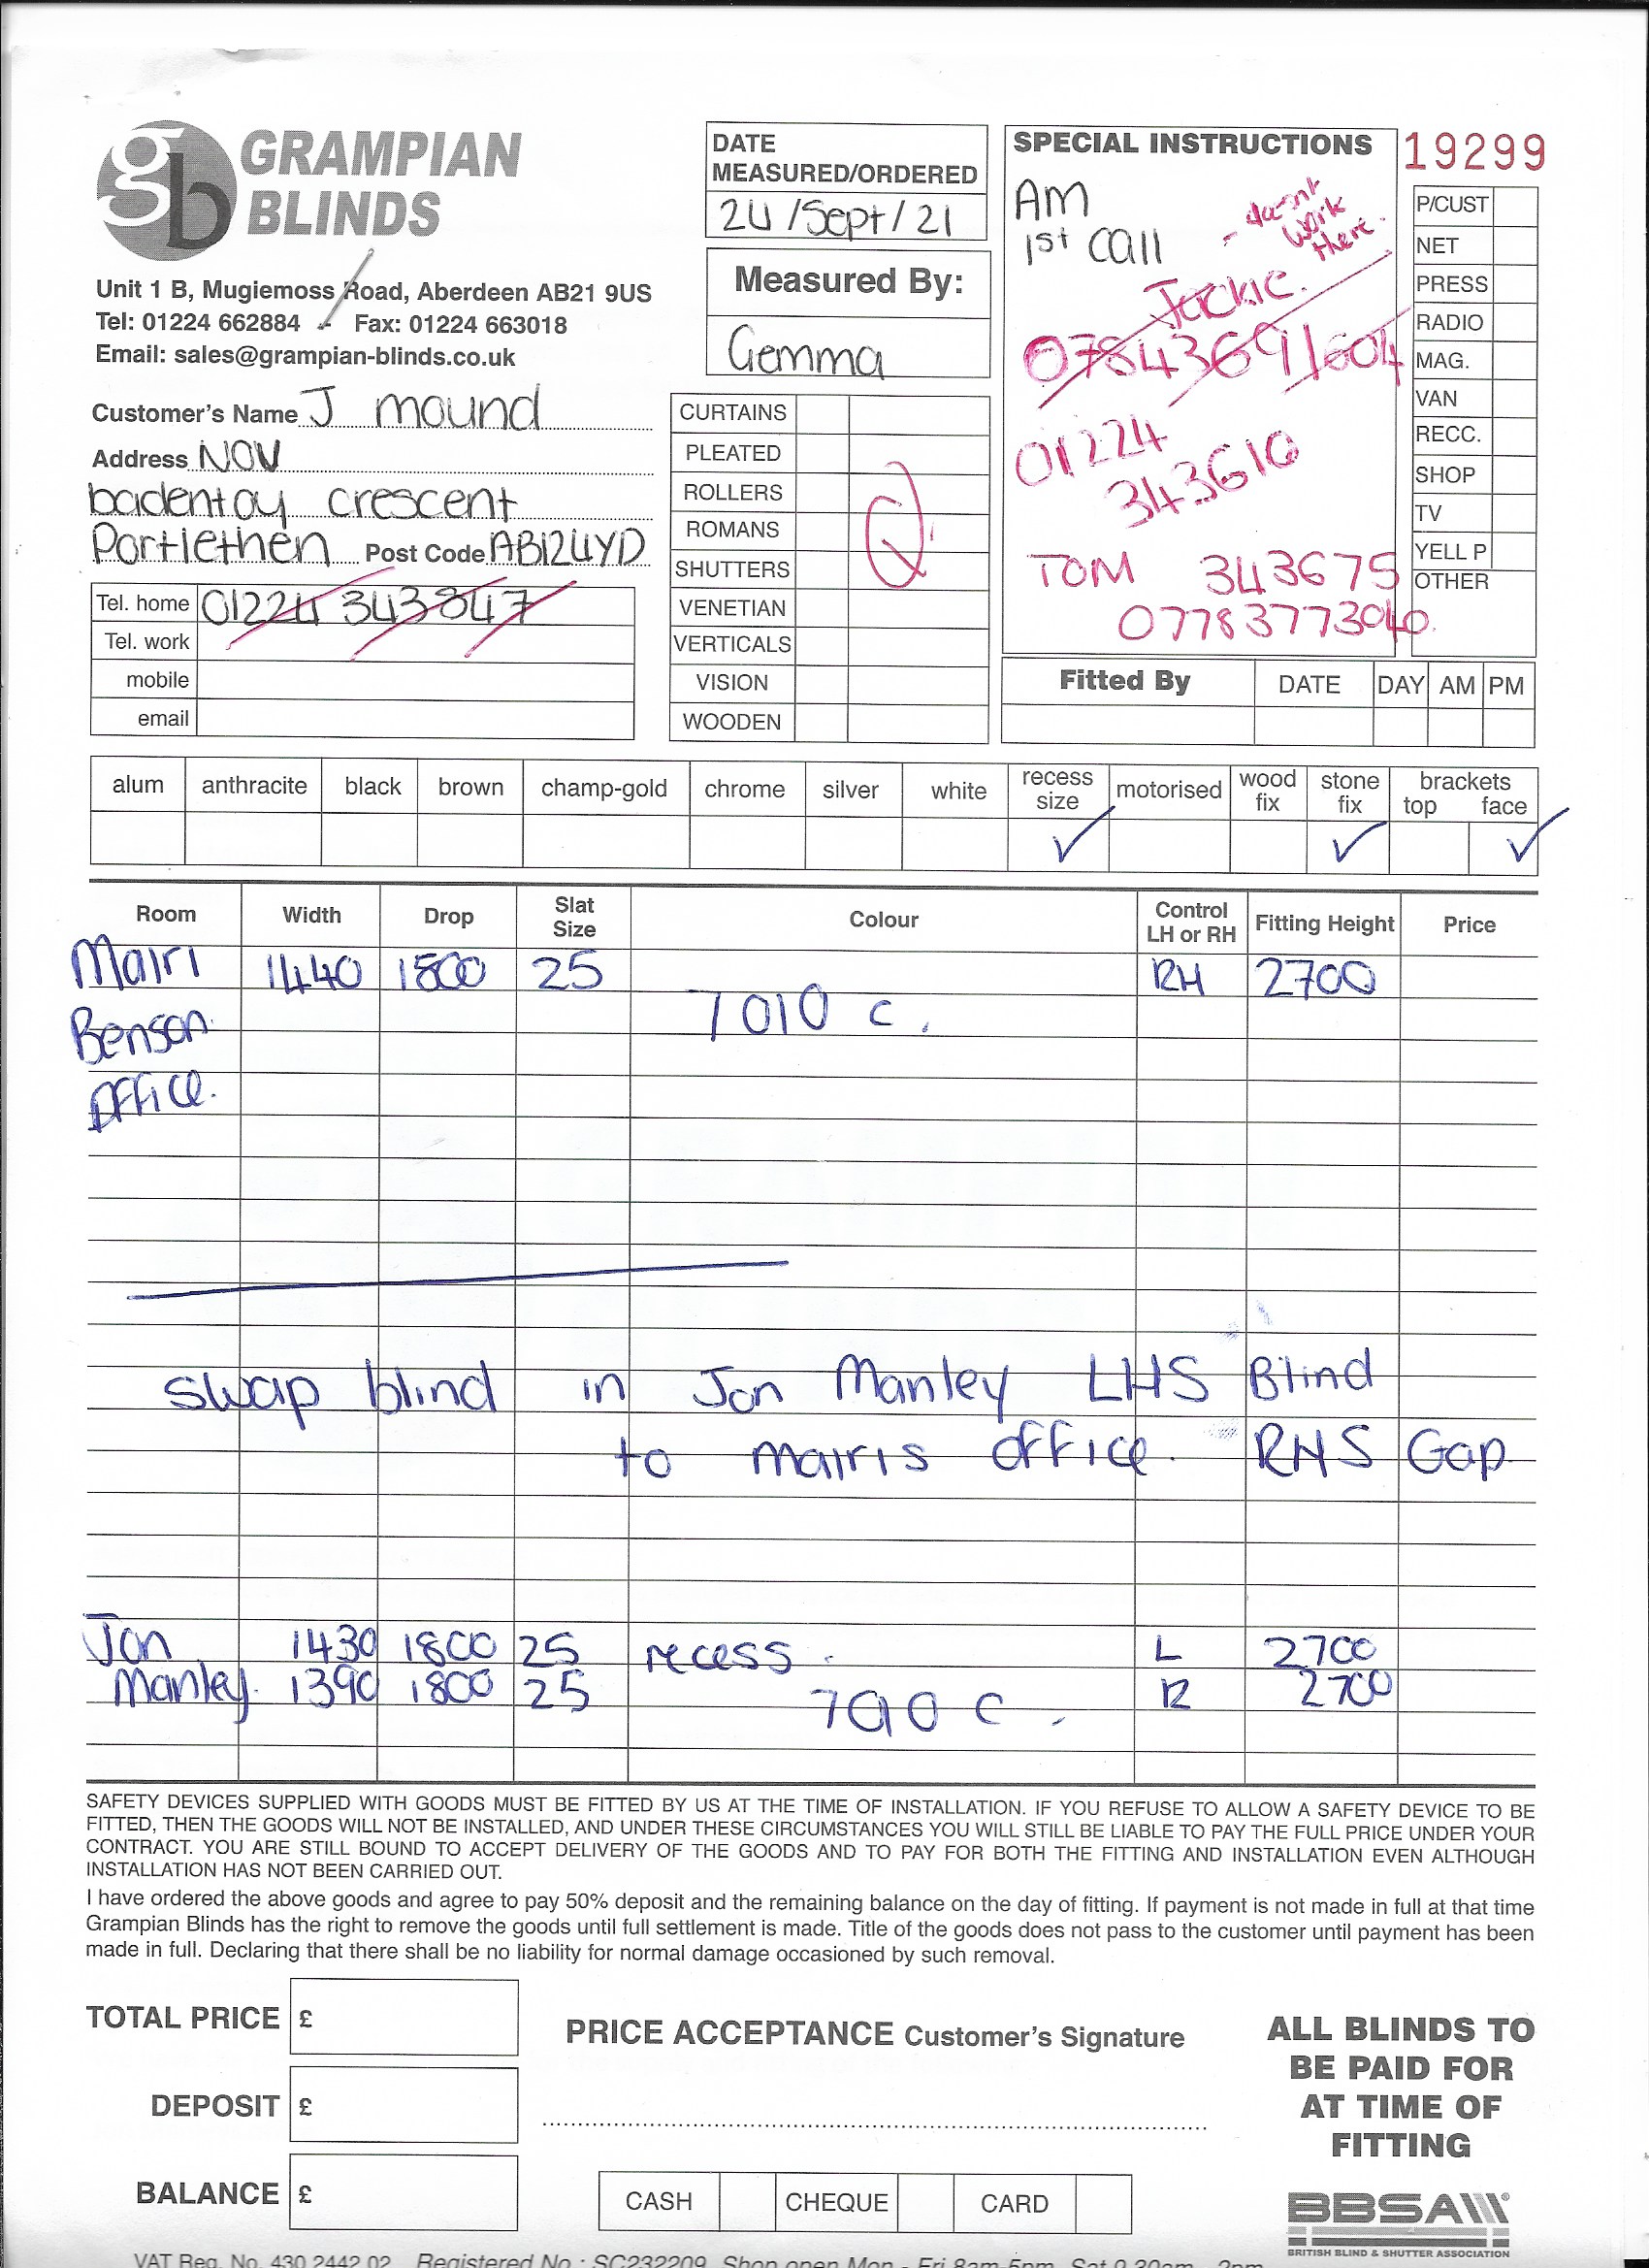 GRAMPIAN
BLINDS
Unit 1 B, Mugiemoss Road, Aberdeen AB21 9US
Tel: 01224 662884 Fax: 01224 663018
Email: sales@grampian-blinds.co.uk
Customer's Name J mound
Address NOV
badentoy crescent
Portlethen Post Code AB12 4YD
Tel. home 01224 343847
Tel. work
mobile
email
DATE
MEASURED/ORDERED
24/Sept/21
Measured By:
Gemma
CURTAINS
PLEATED
ROLLERS
ROMANS
SHUTTERS
VENETIAN
VERTICALS
VISION
WOODEN
SPECIAL INSTRUCTIONS
AM
1st call
- doesnt
work
there.
Jackie.
07843691604
01224
343610
TOM 343675
07783773040
19299
P/CUST
NET
PRESS
RADIO
MAG.
VAN
RECC.
SHOP
TV
YELL P
OTHER
Fitted By DATE DAY AM PM
alum anthracite black brown champ-gold chrome silver white recess size motorised wood fix stone fix brackets top face
Room Width Drop Slat Size Colour Control LH or RH Fitting Height Price
Mairi 1440 1800 25 RH 2700
Benson 7010 c.
Office.
swap blind in Jon Manley LHS Blind
to mairis office. RHS Gap
Jon 1430 1800 25 recess. L 2700
Manley. 1390 1800 25 R 2700
7010 C.
SAFETY DEVICES SUPPLIED WITH GOODS MUST BE FITTED BY US AT THE TIME OF INSTALLATION. IF YOU REFUSE TO ALLOW A SAFETY DEVICE TO BE
FITTED, THEN THE GOODS WILL NOT BE INSTALLED, AND UNDER THESE CIRCUMSTANCES YOU WILL STILL BE LIABLE TO PAY THE FULL PRICE UNDER YOUR
CONTRACT. YOU ARE STILL BOUND TO ACCEPT DELIVERY OF THE GOODS AND TO PAY FOR BOTH THE FITTING AND INSTALLATION EVEN ALTHOUGH
INSTALLATION HAS NOT BEEN CARRIED OUT.
I have ordered the above goods and agree to pay 50% deposit and the remaining balance on the day of fitting. If payment is not made in full at that time
Grampian Blinds has the right to remove the goods until full settlement is made. Title of the goods does not pass to the customer until payment has been
made in full. Declaring that there shall be no liability for normal damage occasioned by such removal.
TOTAL PRICE £
DEPOSIT £
BALANCE £
PRICE ACCEPTANCE Customer's Signature
CASH CHEQUE CARD
ALL BLINDS TO
BE PAID FOR
AT TIME OF
FITTING
BBSA
BRITISH BLIND & SHUTTER ASSOCIATION
VAT Reg. No. 430 2442 02 Registered No.: SC232209 Shop open Mon - Fri 8am-5pm Sat 9.30am - 2pm